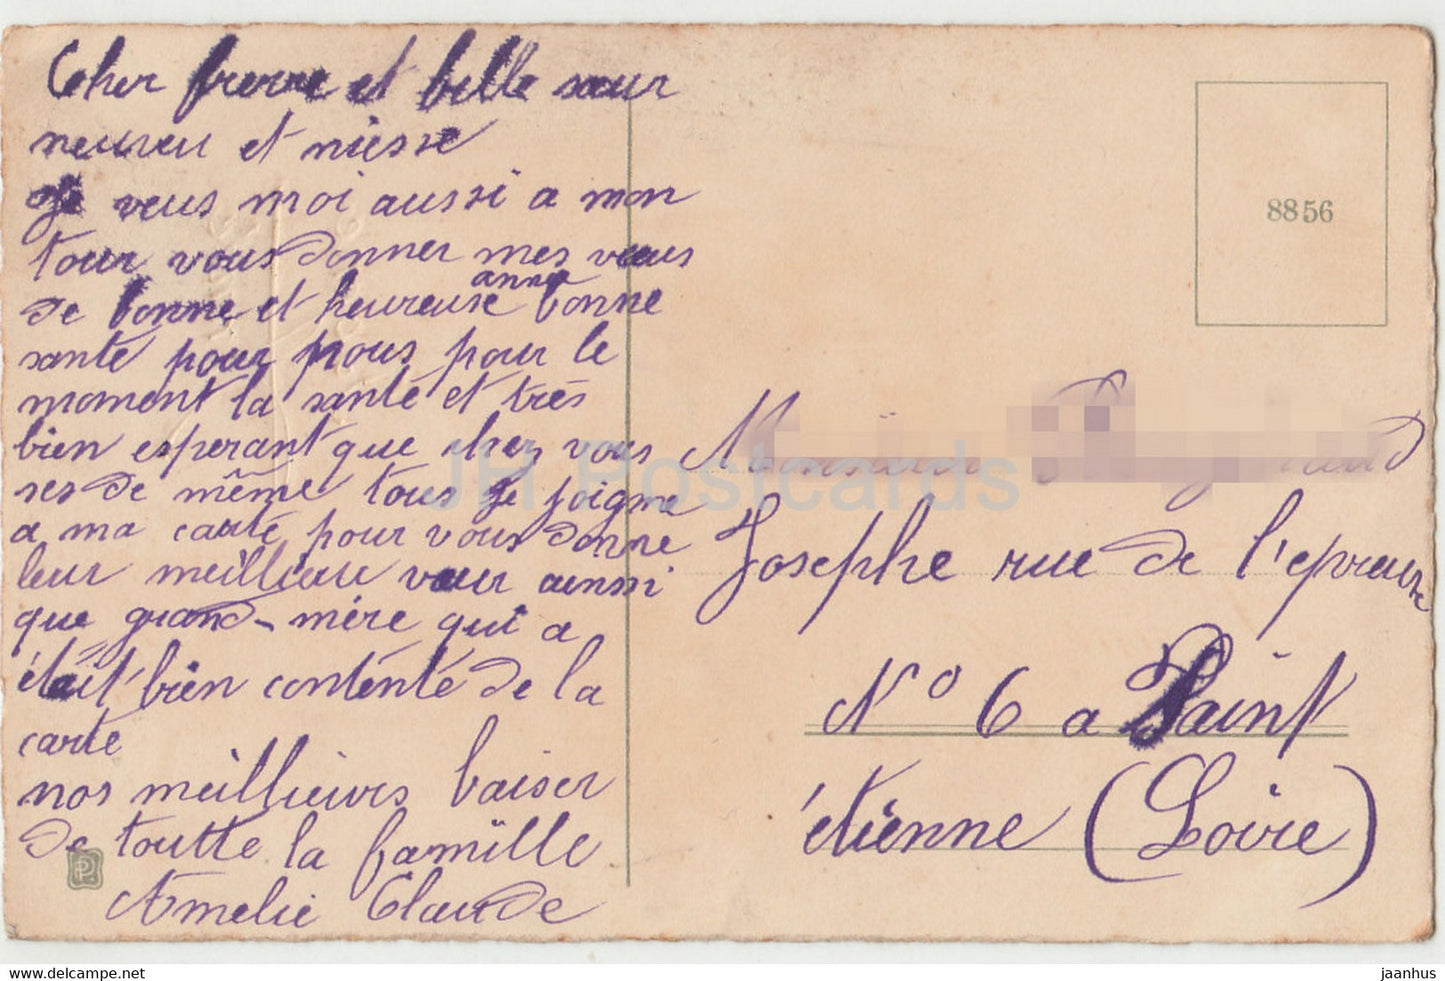 Cher frerre et belle sœur
neuveu et niesse
Je veus moi aussi a mon
tour vous donner mes vœus
de bonne et heureuse anné bonne
santé pour nous pour le
moment la santé et très
bien esperant que chez vous
ses de même tous se joigne
a ma carte pour vous donné
leur meillieure vœur ainssi
que grand-mère qui a
était bien contente de la
carte
nos meillieurs baiser
de toutte la famille
Amelie Claude
8856
Monsieur
Josephe rue de l'epreuve
N° 6 a Saint
étienne (Loire)
JH Postcards
delcampe.net
jaanhus